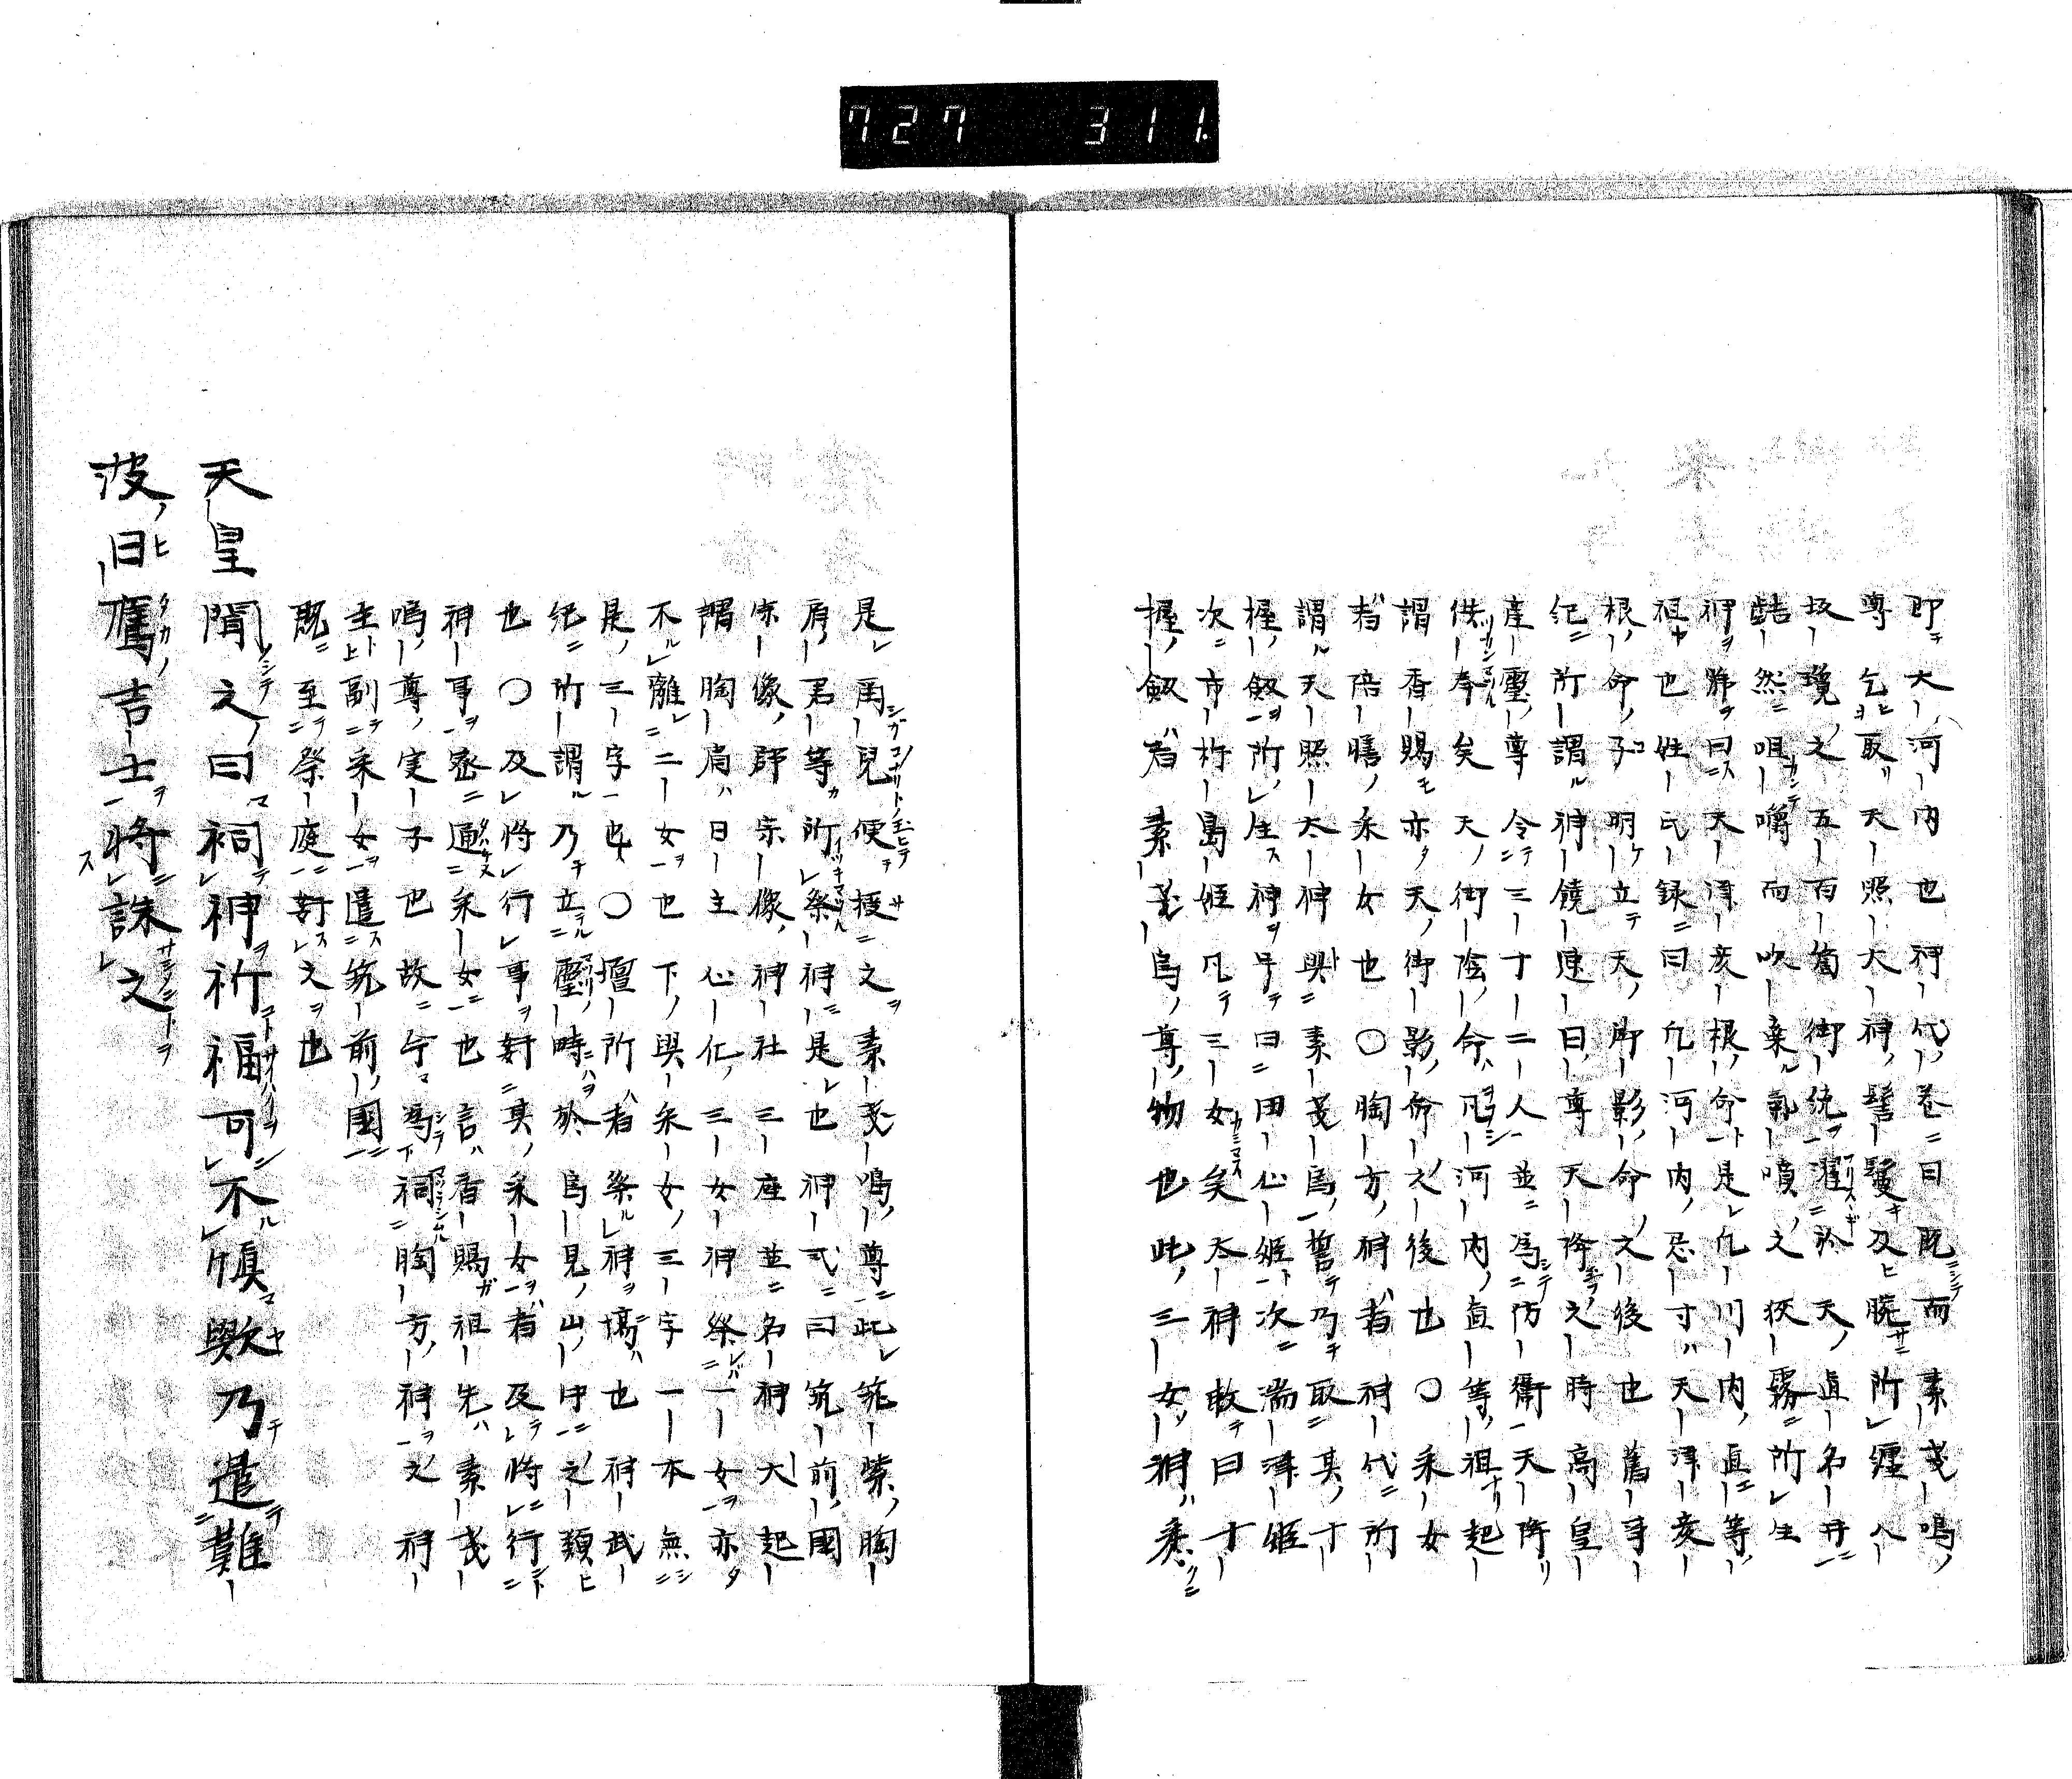 727 311
即大河内也神代卷曰既而素戔嗚
尊乞取天照大神髻鬘及腕所纏八
坂瓊之五百箇御統濯於天真名井
𪗾然咀嚼而吹棄氣噴之狹霧所生
神號曰天津彦根命是凡川内直等
祖也姓氏録曰凡河内忌寸天津彦
根命子明立天御影命之後也舊事
紀所謂神饒速日尊天降之時高皇
産靈尊令三十二人並為防衛天降
供奉矣天御陰命凡河内直等祖起
謂香賜亦天御影命之後也〇采女
者陪膳采女也〇胸方神者神代所
謂天照太神與素戔烏誓乃取其十
握劔所生神号曰田心姫次湍津姫
次市杵島姫凡三女矣太神敕曰十
握劔者素戔烏尊物也此三女神悉
是爾兒便授之素戔嗚尊此筑紫胸
肩君等所祭神是也神式曰筑前國
宗像郡宗像神社三座並名神大起
謂胸肩日主心化三女神祭一女亦
不離二女也下與采女三字一本無
是三字也〇壇所者祭神場也神武
紀所謂乃立靈畤於鳥見山中之類
也〇及將行事奸其采女者及將行
神事丞通采女也言香賜祖先素戔
嗚尊実子也故今為祠胸方神之神
主副采女遣筑前國
既至祭庭奸之也
天皇聞之曰祠神祈福可不慎歟乃遣難
波日鷹吉士將誅之